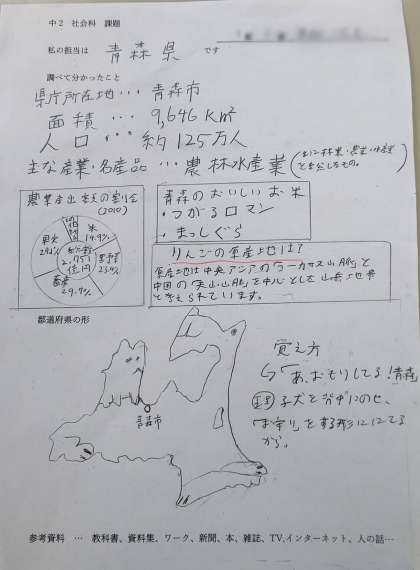 中2 社会科 課題
私の担当は 青森県 です
調べて分かったこと
県庁所在地…青森市
面積…9,646km²
人口…約125万人
主な産業・名産品…農林水産業
農業産出 の割合
(2010)
米
果実
畜産
青森のおいしいお米
・つがるロマン
・まっしぐら
りんごの原産地は?
原産地は中央アジアのコーカサス山脈と
中国の天山山脈を中心とした山岳地帯
と考えられています。
都道府県の形
青森市
覚え方
「あ、おもりしてる!青森
子犬を背中にのせ、
「お守り」をする形ににてる
から。
参考資料 … 教科書、資料集、ワーク、新聞、本、雑誌、TV,インターネット、人の話…